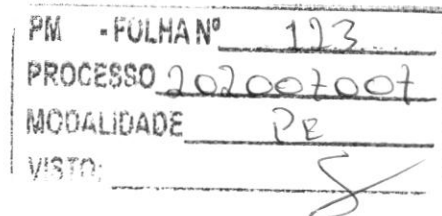 PM - FOLHA Nº 123
PROCESSO 202007007
MODALIDADE PE
VISTO: